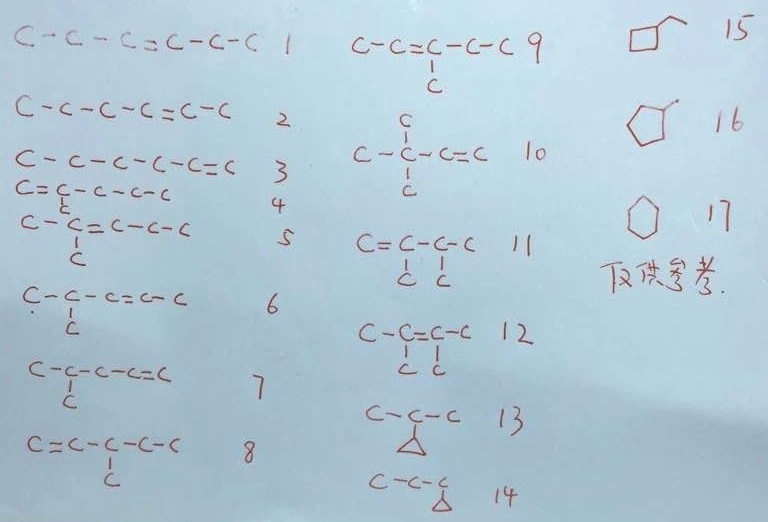 C-C-C=C-C-C 1
C-C-C-C=C-C 2
C-C-C-C-C=C 3
C=C-C-C-C 4
C
C-C=C-C-C 5
C
C-C-C=C-C 6
C
C-C-C-C=C 7
C
C=C-C-C-C 8
C
C-C=C-C-C 9
C
C
C-C-C=C 10
C
C=C-C-C 11
C C
C-C=C-C 12
C C
C-C-C 13
C-C-C 14
15
16
17
仅供参考.